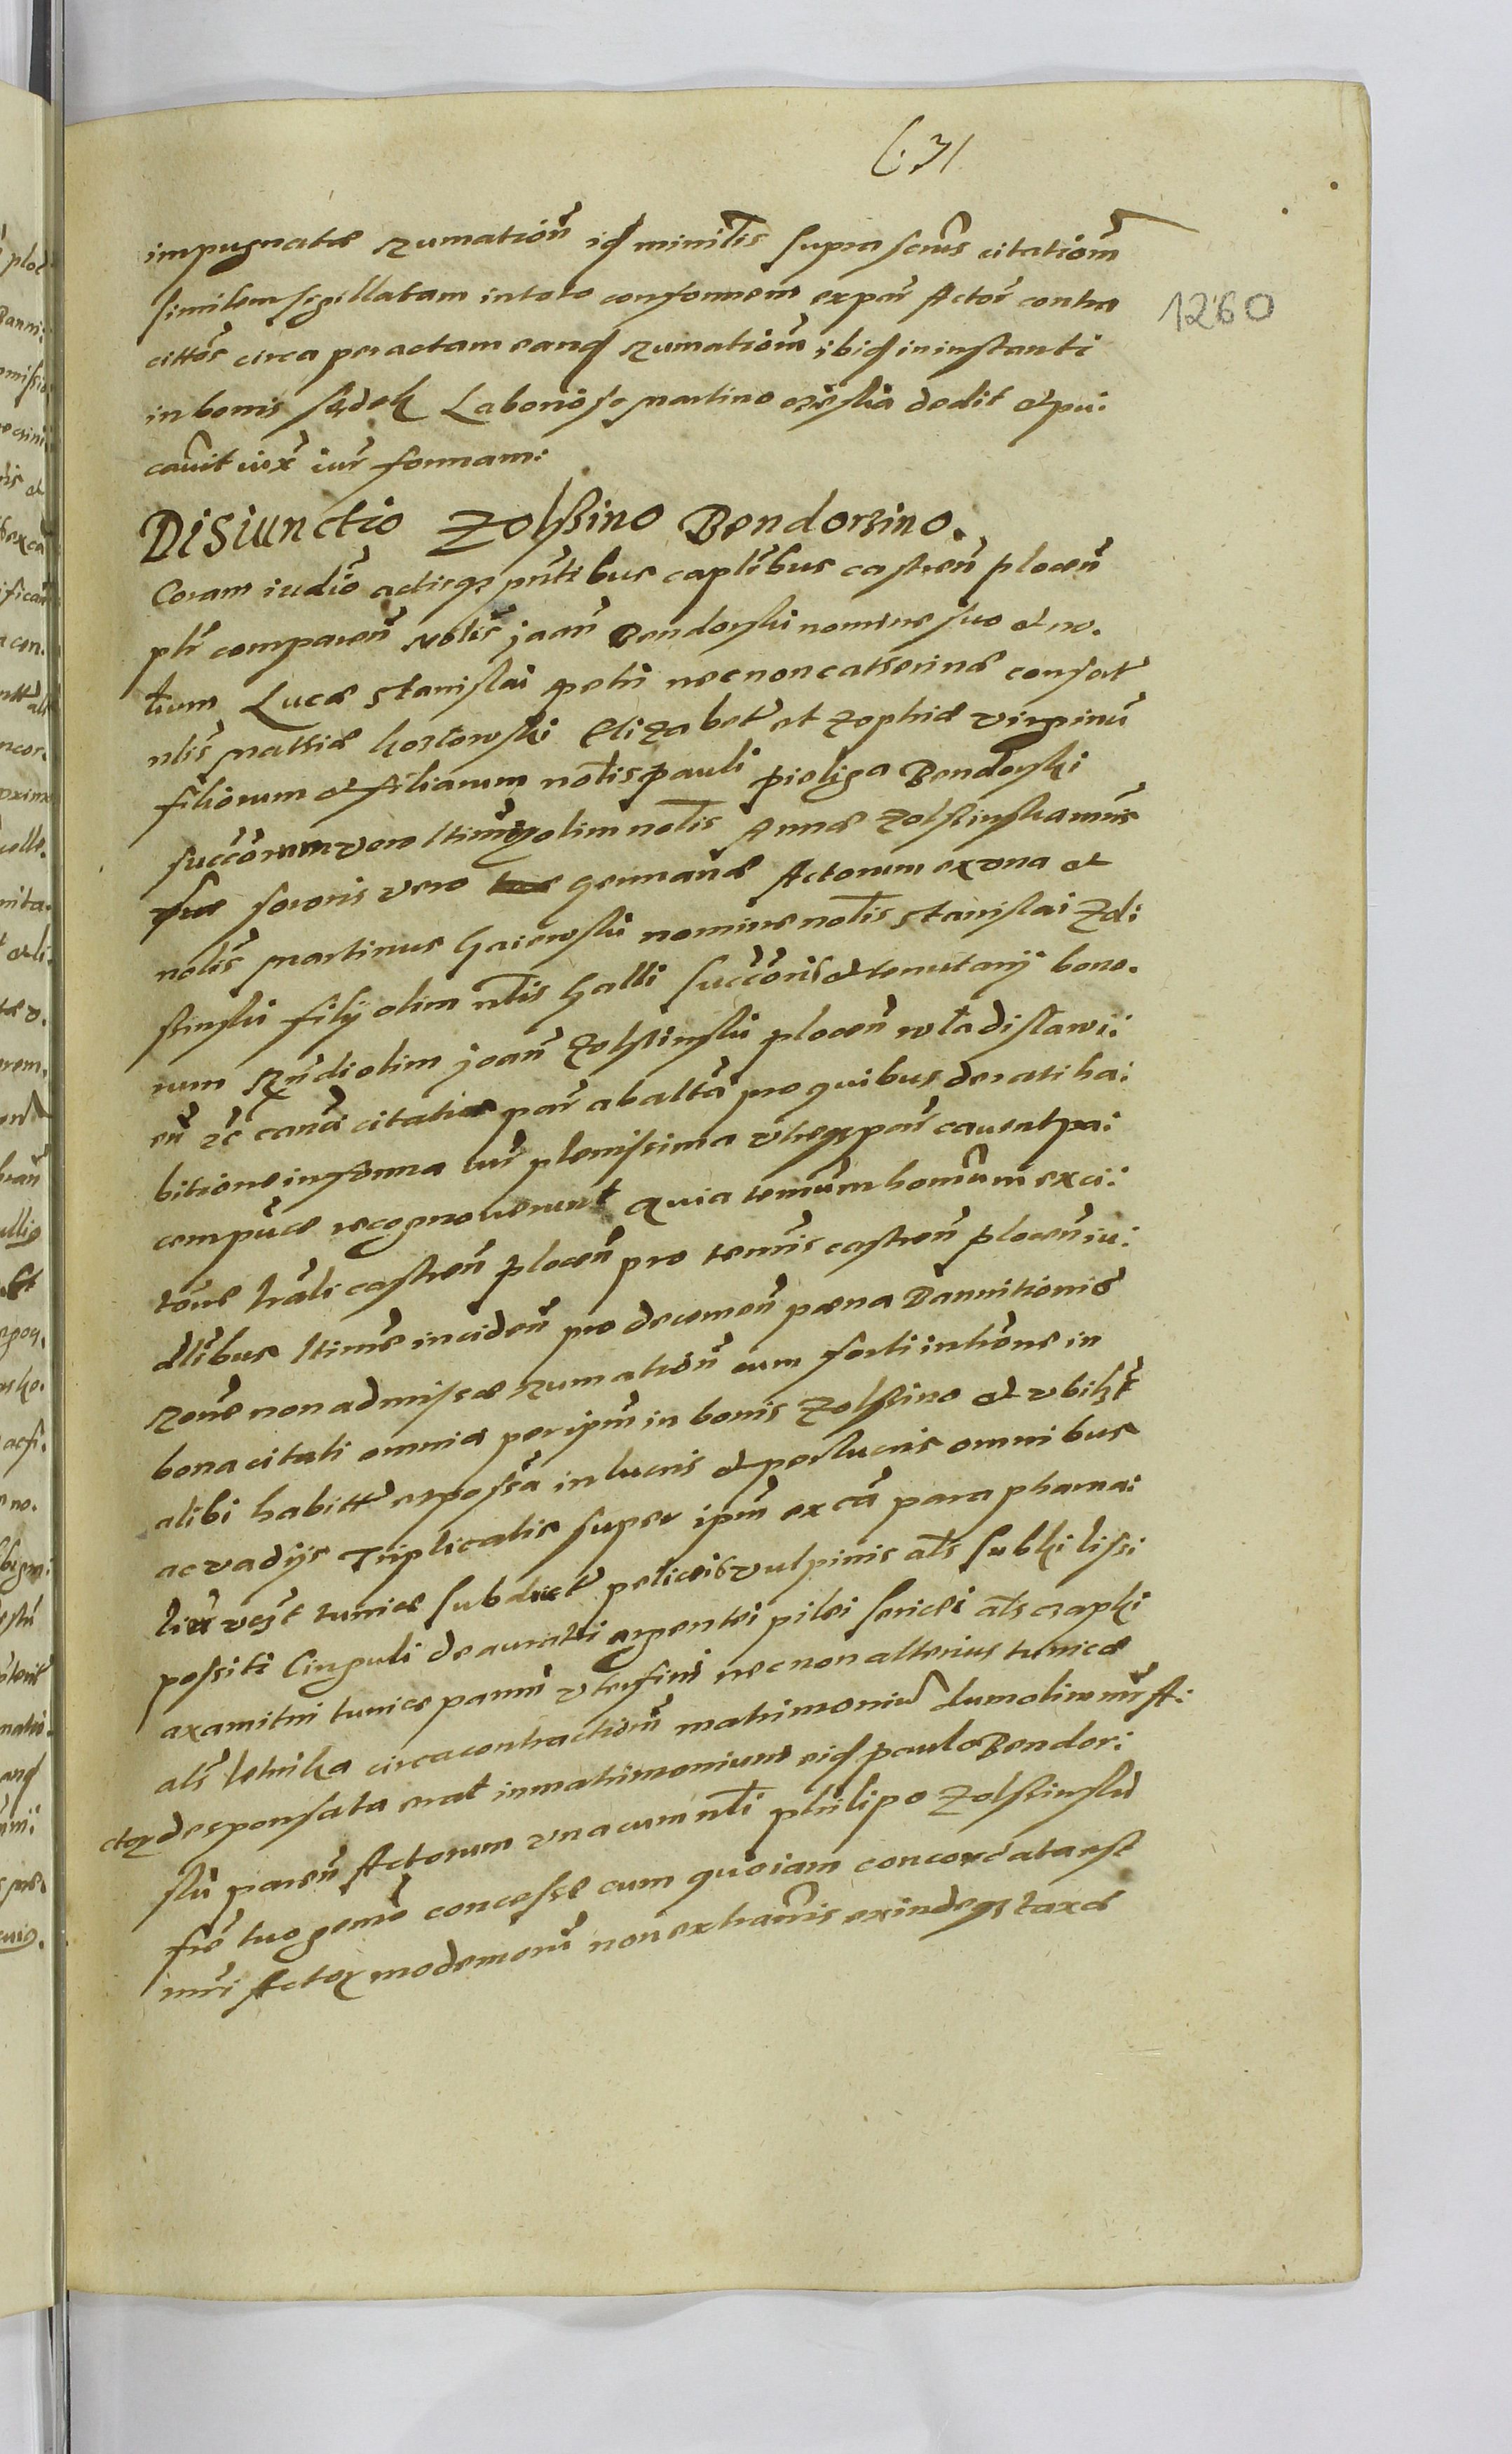 impugnatæ Rumation̄ id minilis supra scrius citation̄
similem sigillatam in toto consonnem ex par̄ Actor̄ contra
cittor̄ circa peractam eand Rumation̄ ibid in instanti
in bonis sądek Laborioso Martino dedit et pu:
cavit iux̄ iur̄ formam:
Disiunctio Zolssino Bendorzino.
Coram iudio actisq3 pn̄tibus capl̄ibus castren̄ plocen̄
pl̄r comparen̄ Nolis joan̄ Bendorski nomine suo et no.
lium Lucæ Stanislai petri necnon catherinæ consort
nlis Mathiæ kozłowski Elizabet et Zophiæ virginū
filiorum et filiarum nolis pauli pieliga Bendorski
succorum vero ltimoq3 olim nolis Annæ Zolssinska mris
suæ sororis vero germanæ Actorum ex vna et
nolis Martinus Gaiewski nomine nolis Stanislai Zol
ssinski filÿ olim nlis Galli succoris et tenutarÿ bono.
rum Rn̄di olim joan̄ Zolssinski plocen̄ wladislawi:
en̄ 2c can̄ci citatis par̄ ab alta pro quibus de ratiha:
bitione in forma iur̄ plenissima vtreq3 par̄ caveat pa:
cem puræ recognoverunt Quia temūm homūm ex ci:
tone trāli castren̄ plocen̄ pro termīs castren̄ plocen̄ iu:
dlibus ltime inciden̄ pro decernen̄ pœna Bannitionis
Rōne non admissæ Rumation̄ cum forti intione in
bona citati omnia per ipm̄ in bonis Zolssino et vbiq3
alibi habitt et possa in lucris et perlucris omnibus
ac vadÿs Triplicatis super ipm̄ ex cā para pharna:
liū vest tunicæ subduct peliceis vulpinis als subki lissi
possiti Cinguli deaurati argentei pilei sericei als czapki
axamitni tunicæ panni vterfini necnon alterius tunicæ
als letnika circa contraction̄ matrimonii dum olim mr̄ A:
ctor̄ desponsata erat in matrimonium eid paulo Bendor:
ski paren̄ Actorum vna cum nli philipo Zolssinski
fr̄e tuo gemō concesse cum quo iam concordata est
mr̄i Actor̄ modernorū non extravis exindeq3 taxæ
1260